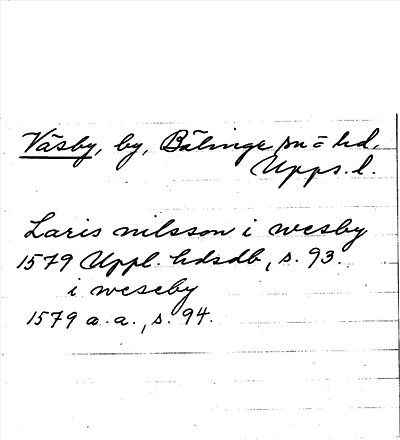 Väsby, by, Bälinge sn = hd.
Upps. l.
Laris nilsson i wesby
1579 Uppl. hdsdb, s. 93.
i weseby
1579 a.a., s. 94.